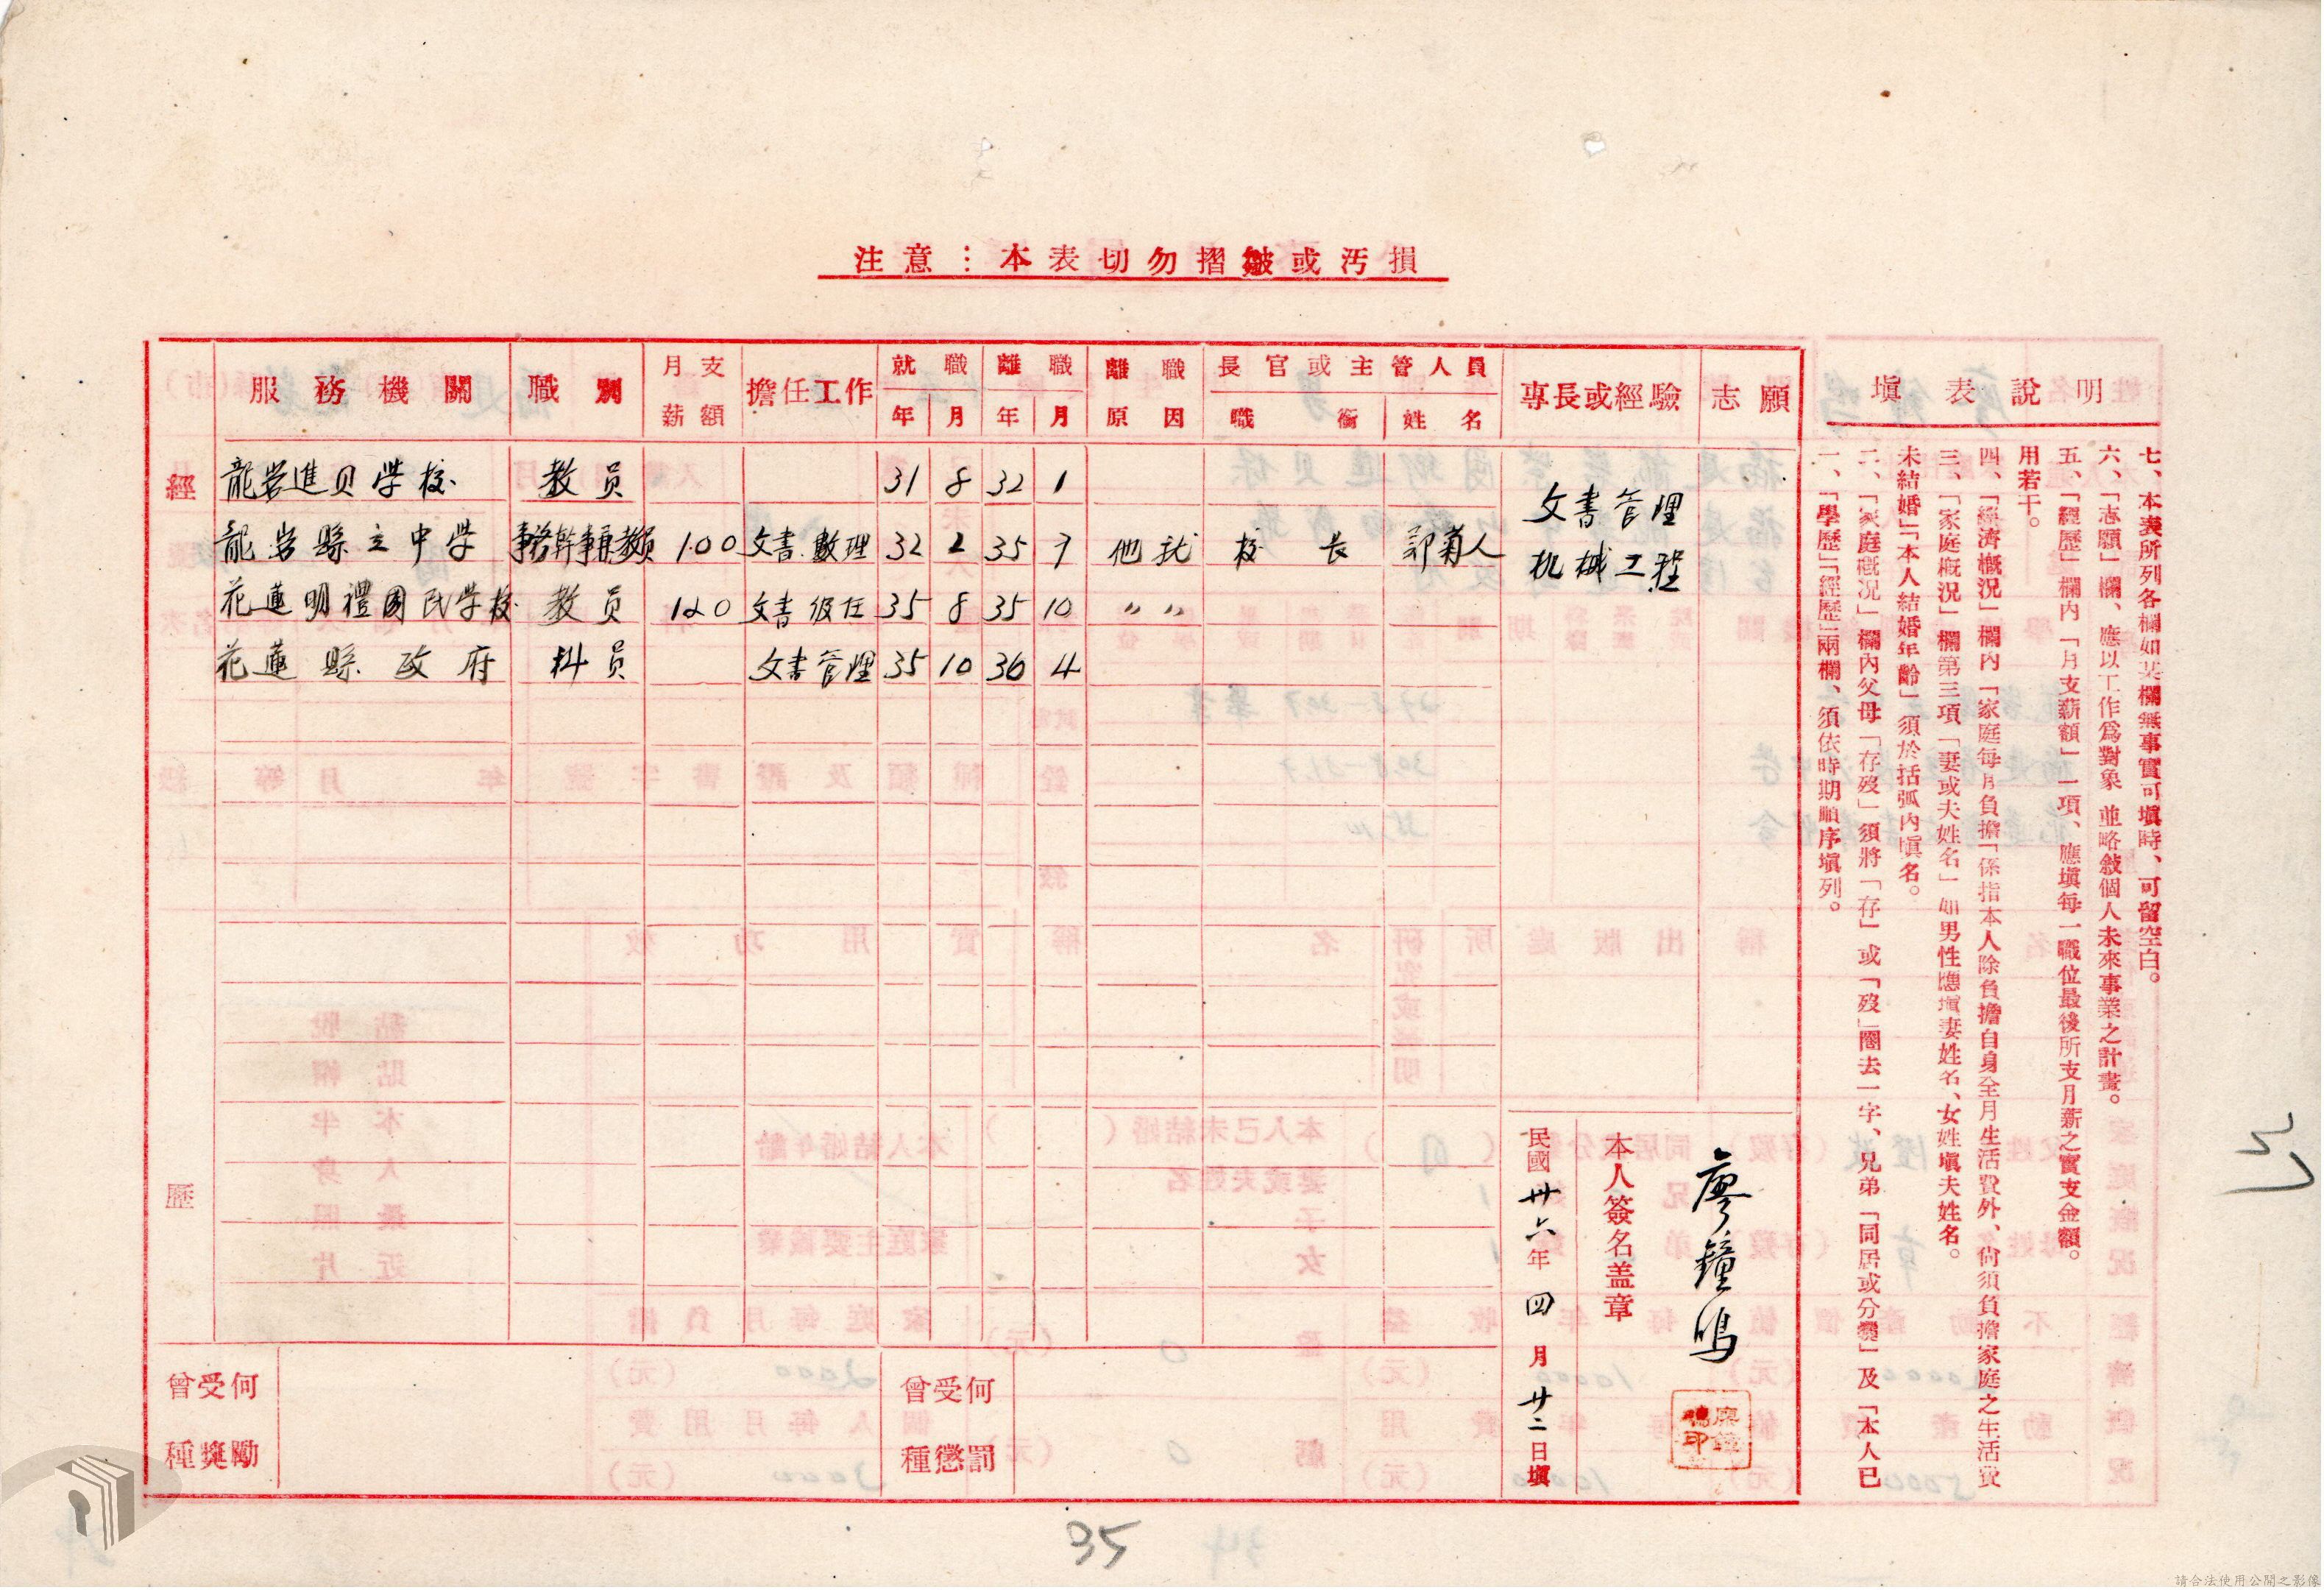 注意：本表切勿摺皺或污損
服務機關 職別 月支薪額 擔任工作 就職年月 離職年月 離職原因 長官或主管人員職銜姓名 專長或經驗 志願
經歷
龍岩進贝学校 教员 31 8 32 1
龍岩縣立中学 事務幹事兼教员 100 文書.數理 32 2 35 7 他就 校長 郭菊人
花蓮明禮國民学校 教员 120 文書 级任 35 8 35 10 〃〃
花蓮縣政府 科员 文書管理 35 10 36 4
文書管理
机械工程
曾受何種獎勵
曾受何種懲罰
本人簽名盖章
廖鐘鳴
廖鐘鳴印
民國卅六年四月廿二日填
填表說明
一、「學歷」「經歷」兩欄、須依時期順序填列。
二、「家庭概況」欄內父母「存歿」須將「存」或「歿」圈去一字、兄弟「同居或分爨」及「本人已
未結婚」「本人結婚年齡」須於括弧內填名。
三、「家庭概況」欄第三項「妻或夫姓名」如男性應填妻姓名、女姓填夫姓名。
四、「經濟概況」欄內「家庭每月負擔」係指本人除負擔自身全月生活費外、尙須負擔家庭之生活費
用若干。
五、「經歷」欄內「月支薪額」一項、應填每一職位最後所支月薪之實支金額。
六、「志願」欄、應以工作爲對象 並略敍個人未來事業之計畫。
七、本表所列各欄如某欄無事實可填時、可留空白。
35
請合法使用公開之影像